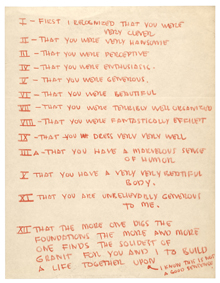 I - FIRST I RECOGNIZED THAT YOU WERE
VERY CLEVER
II - THAT YOU WERE VERY HANDSOME
III - THAT YOU WERE PERCEPTIVE
IV - THAT YOU WERE ENTHUSIASTIC.
V - THAT YOU WERE GENEROUS.
VI - THAT YOU WERE BEAUTIFUL
VII - THAT YOU WERE TERRIBLY WELL ORGANISED
VIII - THAT YOU WERE FANTASTICALLY EFFICIENT
IX - THAT YOU DRESS VERY VERY WELL
IX A - THAT YOU HAVE A MARVELOUS SENSE
OF HUMOR
X THAT YOU HAVE A VERY VERY BEAUTIFUL
BODY.
XI THAT YOU ARE UNBELIEVABLY GENEROUS
TO ME.
XII THAT THE MORE ONE DIGS THE
FOUNDATIONS THE MORE AND MORE
ONE FINDS THE SOLIDEST OF
GRANIT FOR YOU AND I TO BUILD
A LIFE TOGETHER UPON
I KNOW THIS IS NOT
A GOOD SENTENCE